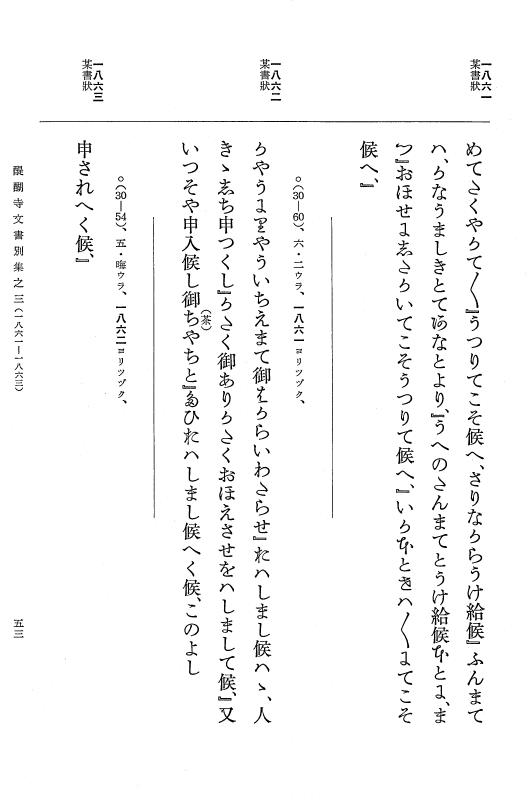 一八六一
某書狀
めてさくやうて〳〵』うつりてこそ候へ、さりなからうけ給候』ふんまて
ハ、かなうましきとて河なとより、』うへのさんまてとうけ給候ほとに、ま
つ』おほせにしたかいてこそうつりて候へ、』いかほとときハ〳〵まてこそ
候へ、』
一八六二
某書狀
○(30—60)、六・二ウラ、一八六一ヨリツヅク、
かやうに里やういちえまて御はからいわたらせ』れハしまし候ハヽ、人
きゝしち申つくし』かたく御ありかたくおほえさせをハしまして候、』又
いつそや申入候し御ちやちと』(茶)多ひれハしまし候へく候、このよし
一八六三
某書狀
○(30—54)、五・晦ウラ、一八六二ヨリツヅク、
申されへく候、』
醍醐寺文書別集之三(一八六一—一八六三)
五三